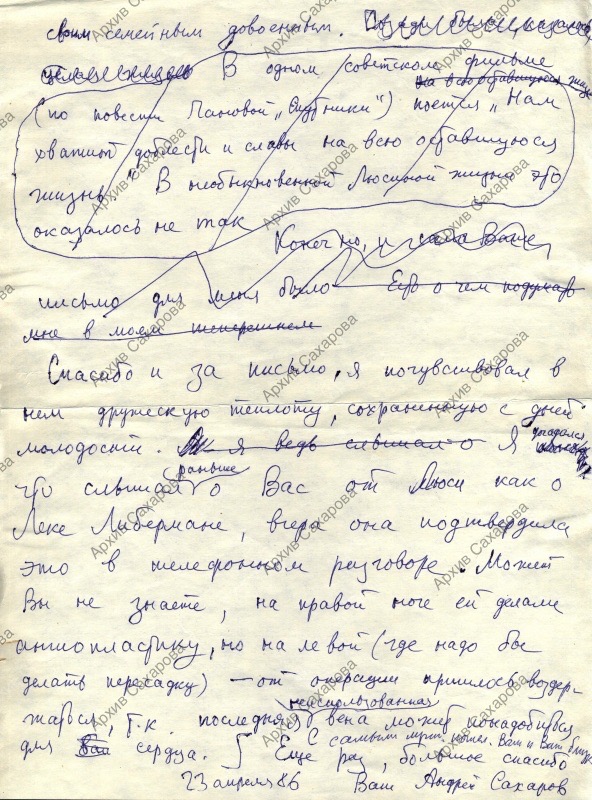 своим семейным довоенным.
В одном советском фильме
на всю оставшуюся жизнь
(по повести Пановой „Спутники“) поется „Нам
хватит доблести и славы на всю оставшуюся
жизнь.“ В необыкновенной Люсиной жизни это
оказалось не так
Конечно, и само Ваше
письмо для меня было Есть о чем подумать
мне в моем теперешнем
Спасибо и за письмо, я почувствовал в
нем дружескую теплоту, сохраненную с дней
молодости. я ведь слышал о Я догадался,
раньше
что слышал о Вас от Люси как о
Леке Либермане, вчера она подтвердила
это в телефонном разговоре. Может
Вы не знаете, на правой ноге ей делали
ангиопластику, но на левой (где надо бы
делать пересадку) — от операции пришлось воздер-
неиспользованная
жаться, т.к. последняя вена может понадобиться
С самыми лучш. пожел. Вам и Ваш. близк.
для сердца. Еще раз, большое спасибо
23 апреля 86 Ваш Андрей Сахаров
Архив Сахарова